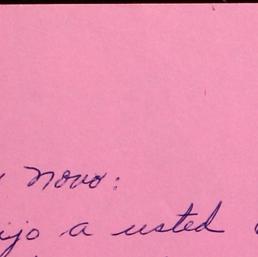 Novo:
ijo a usted